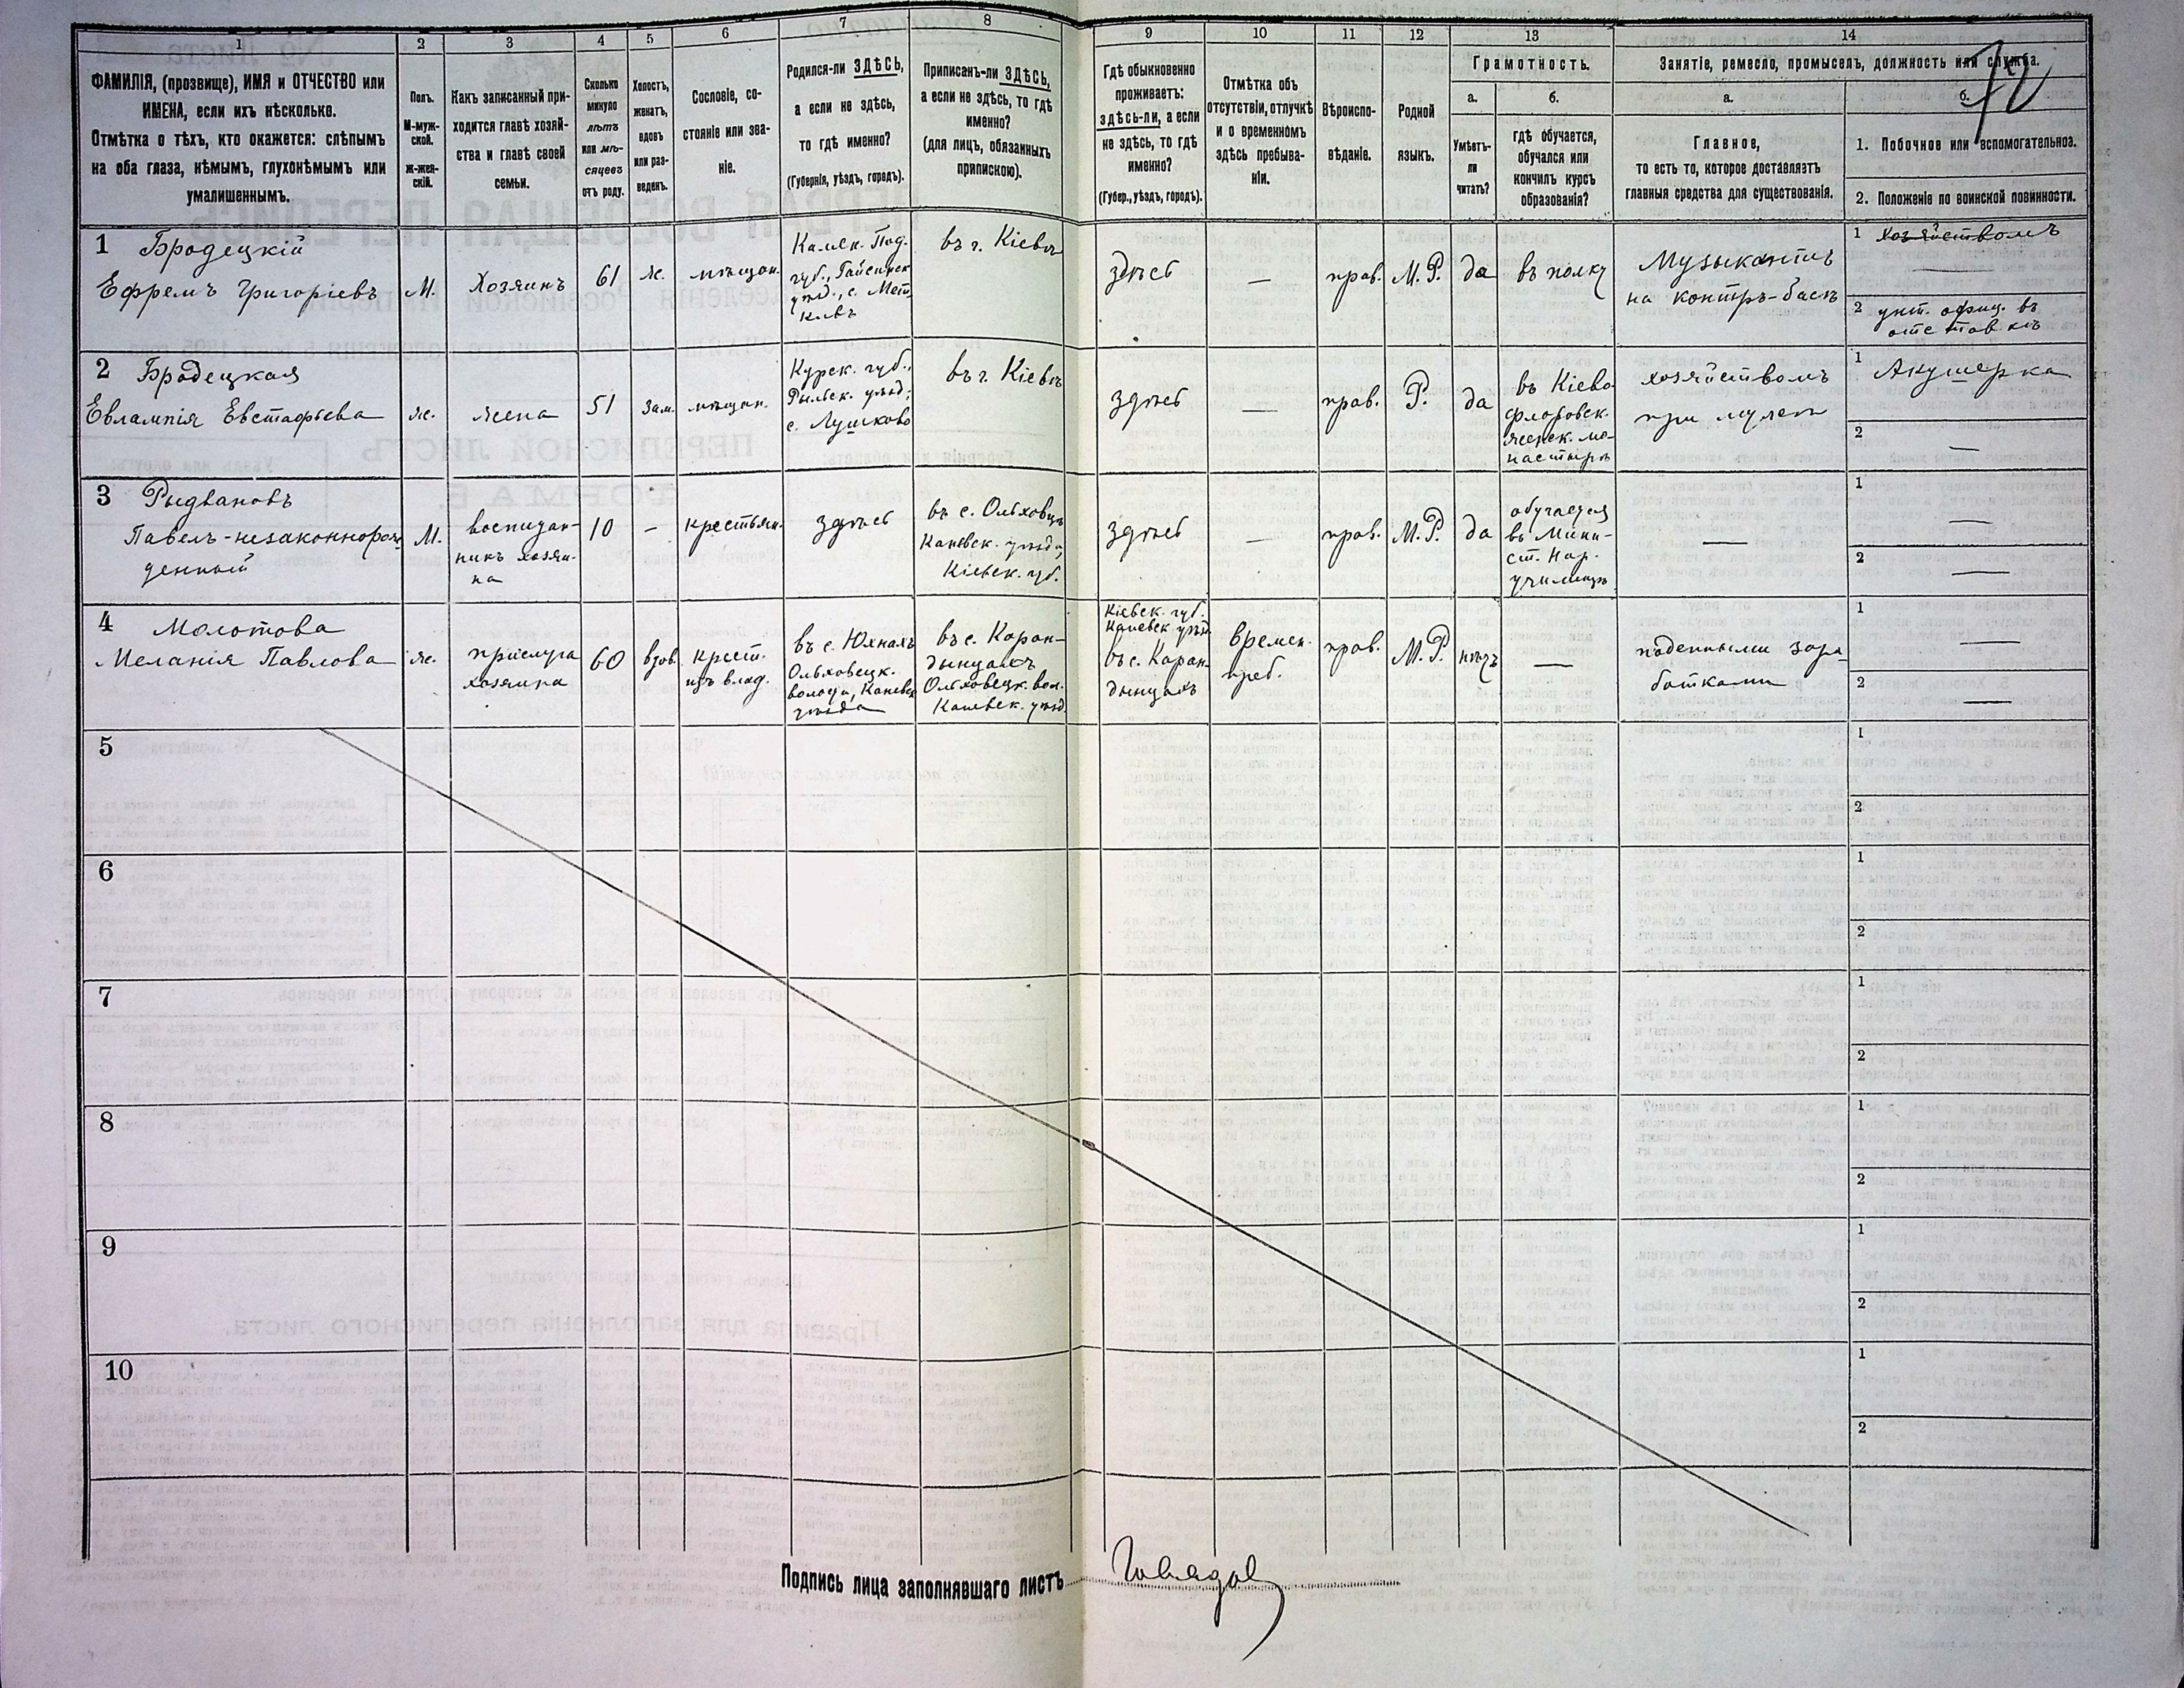 1
2
3
4
5
6
7
8
9
10
11
12
13
14
ФАМИЛІЯ, (прозвище), ИМЯ и ОТЧЕСТВО или
ИМЕНА, если ихъ нѣсколько.
Отмѣтка о тѣхъ, кто окажется: слѣпымъ
на оба глаза, нѣмымъ, глухонѣмымъ или
умалишеннымъ.
Полъ.
М-муж-
ской.
ж-жен-
скій.
Какъ записанный при-
ходится главѣ хозяй-
ства и главѣ своей
семьи.
Сколько
минуло
лѣтъ
или мѣ-
сяцевъ
отъ роду.
Холостъ,
женатъ,
вдовъ
или раз-
веденъ.
Сословіе, со-
стояніе или зва-
ніе.
Родился-ли ЗДѢСЬ,
а если не здѣсь,
то гдѣ именно?
(Губернія, уѣздъ, городъ).
Приписанъ-ли ЗДѢСЬ,
а если не здѣсь, то гдѣ
именно?
(для лицъ, обязанныхъ
припискою).
Гдѣ обыкновенно
проживаетъ:
здѣсь-ли, а если
не здѣсь, то гдѣ
именно?
(Губер., уѣздъ, городъ).
Отмѣтка объ
отсутствіи, отлучкѣ
и о временномъ
здѣсь пребыва-
ніи.
Вѣроиспо-
вѣданіе.
Родной
языкъ.
Грамотность.
а.
Умѣетъ-
ли
читать?
б.
гдѣ обучается,
обучался или
кончилъ курсъ
образованія?
Занятіе, ремесло, промыселъ, должность или служба.
а.
Главное,
то есть то, которое доставляетъ
главныя средства для существованія.
б.
1. Побочное или вспомогательное.
2. Положеніе по воинской повинности.
1 Бродецкій
Ефремъ Григоріевъ
М.
Хозяинъ
61
ж.
мѣщан.
Камен. Под.
губ., Гайсинск
уѣзд., с. Мет
ківъ
въ г. Кіевѣ
здѣсь
—
прав.
М.Р.
да
въ полку
Музыкантъ
на контръ-басѣ
1 хозяйствомъ
—
2 унт. офиц. въ
отставкѣ
2 Бродецкая
Евлампія Евстафьева
ж.
жена
51
зам.
мѣщан.
Курск. губ.,
Рыльск. уѣзд;
с. Лушково
въ г. Кіевѣ
здѣсь
—
прав.
Р.
да
въ Кіево
флоровск.
женск. мо-
настырѣ
хозяйствомъ
при мужѣ
1 Акушерка
2 —
3 Рыдвановъ
Павелъ-незаконнорож
денный
М.
воспитан-
никъ хозяи-
на
10
-
крестьян.
здѣсь
въ с. Ольховцѣ
Каневск. уѣзда,
Кіевск. губ.
здѣсь
—
прав.
М.Р.
да
обучается
въ Мини-
ст. Нар.
училищѣ
—
1 —
2 —
4 Молотова
Меланія Павлова
ж.
прислуга
хозяина
60
вдов.
крест.
изъ влад.
въ с. Юхнахъ
Ольховецк.
волости, Каневск
уѣзда
въ с. Каран-
дынцахъ
Ольховецк. вол.
Каневск. уѣзд
Кіевск. губ.
Каневск. уѣзд
въ с. Каран-
дынцахъ
времен.
преб.
прав.
М.Р.
нѣтъ
—
поденными зара
ботками
1 —
2 —
5
1
2
6
1
2
7
1
2
8
1
2
9
1
2
10
1
2
Подпись лица заполнявшаго листъ